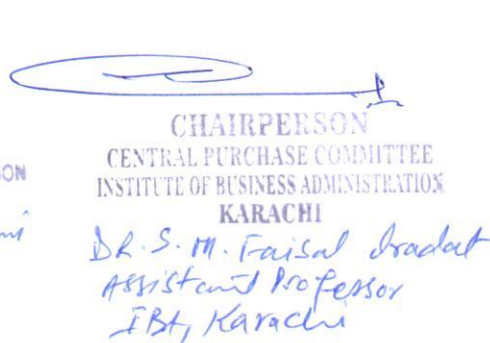 CHAIRPERSON
CENTRAL PURCHASE COMMITTEE
INSTITUTE OF BUSINESS ADMINISTRATION
KARACHI
SON
DR. S. M. Faisal Iradat
Assistant Professor
IBA, Karachi